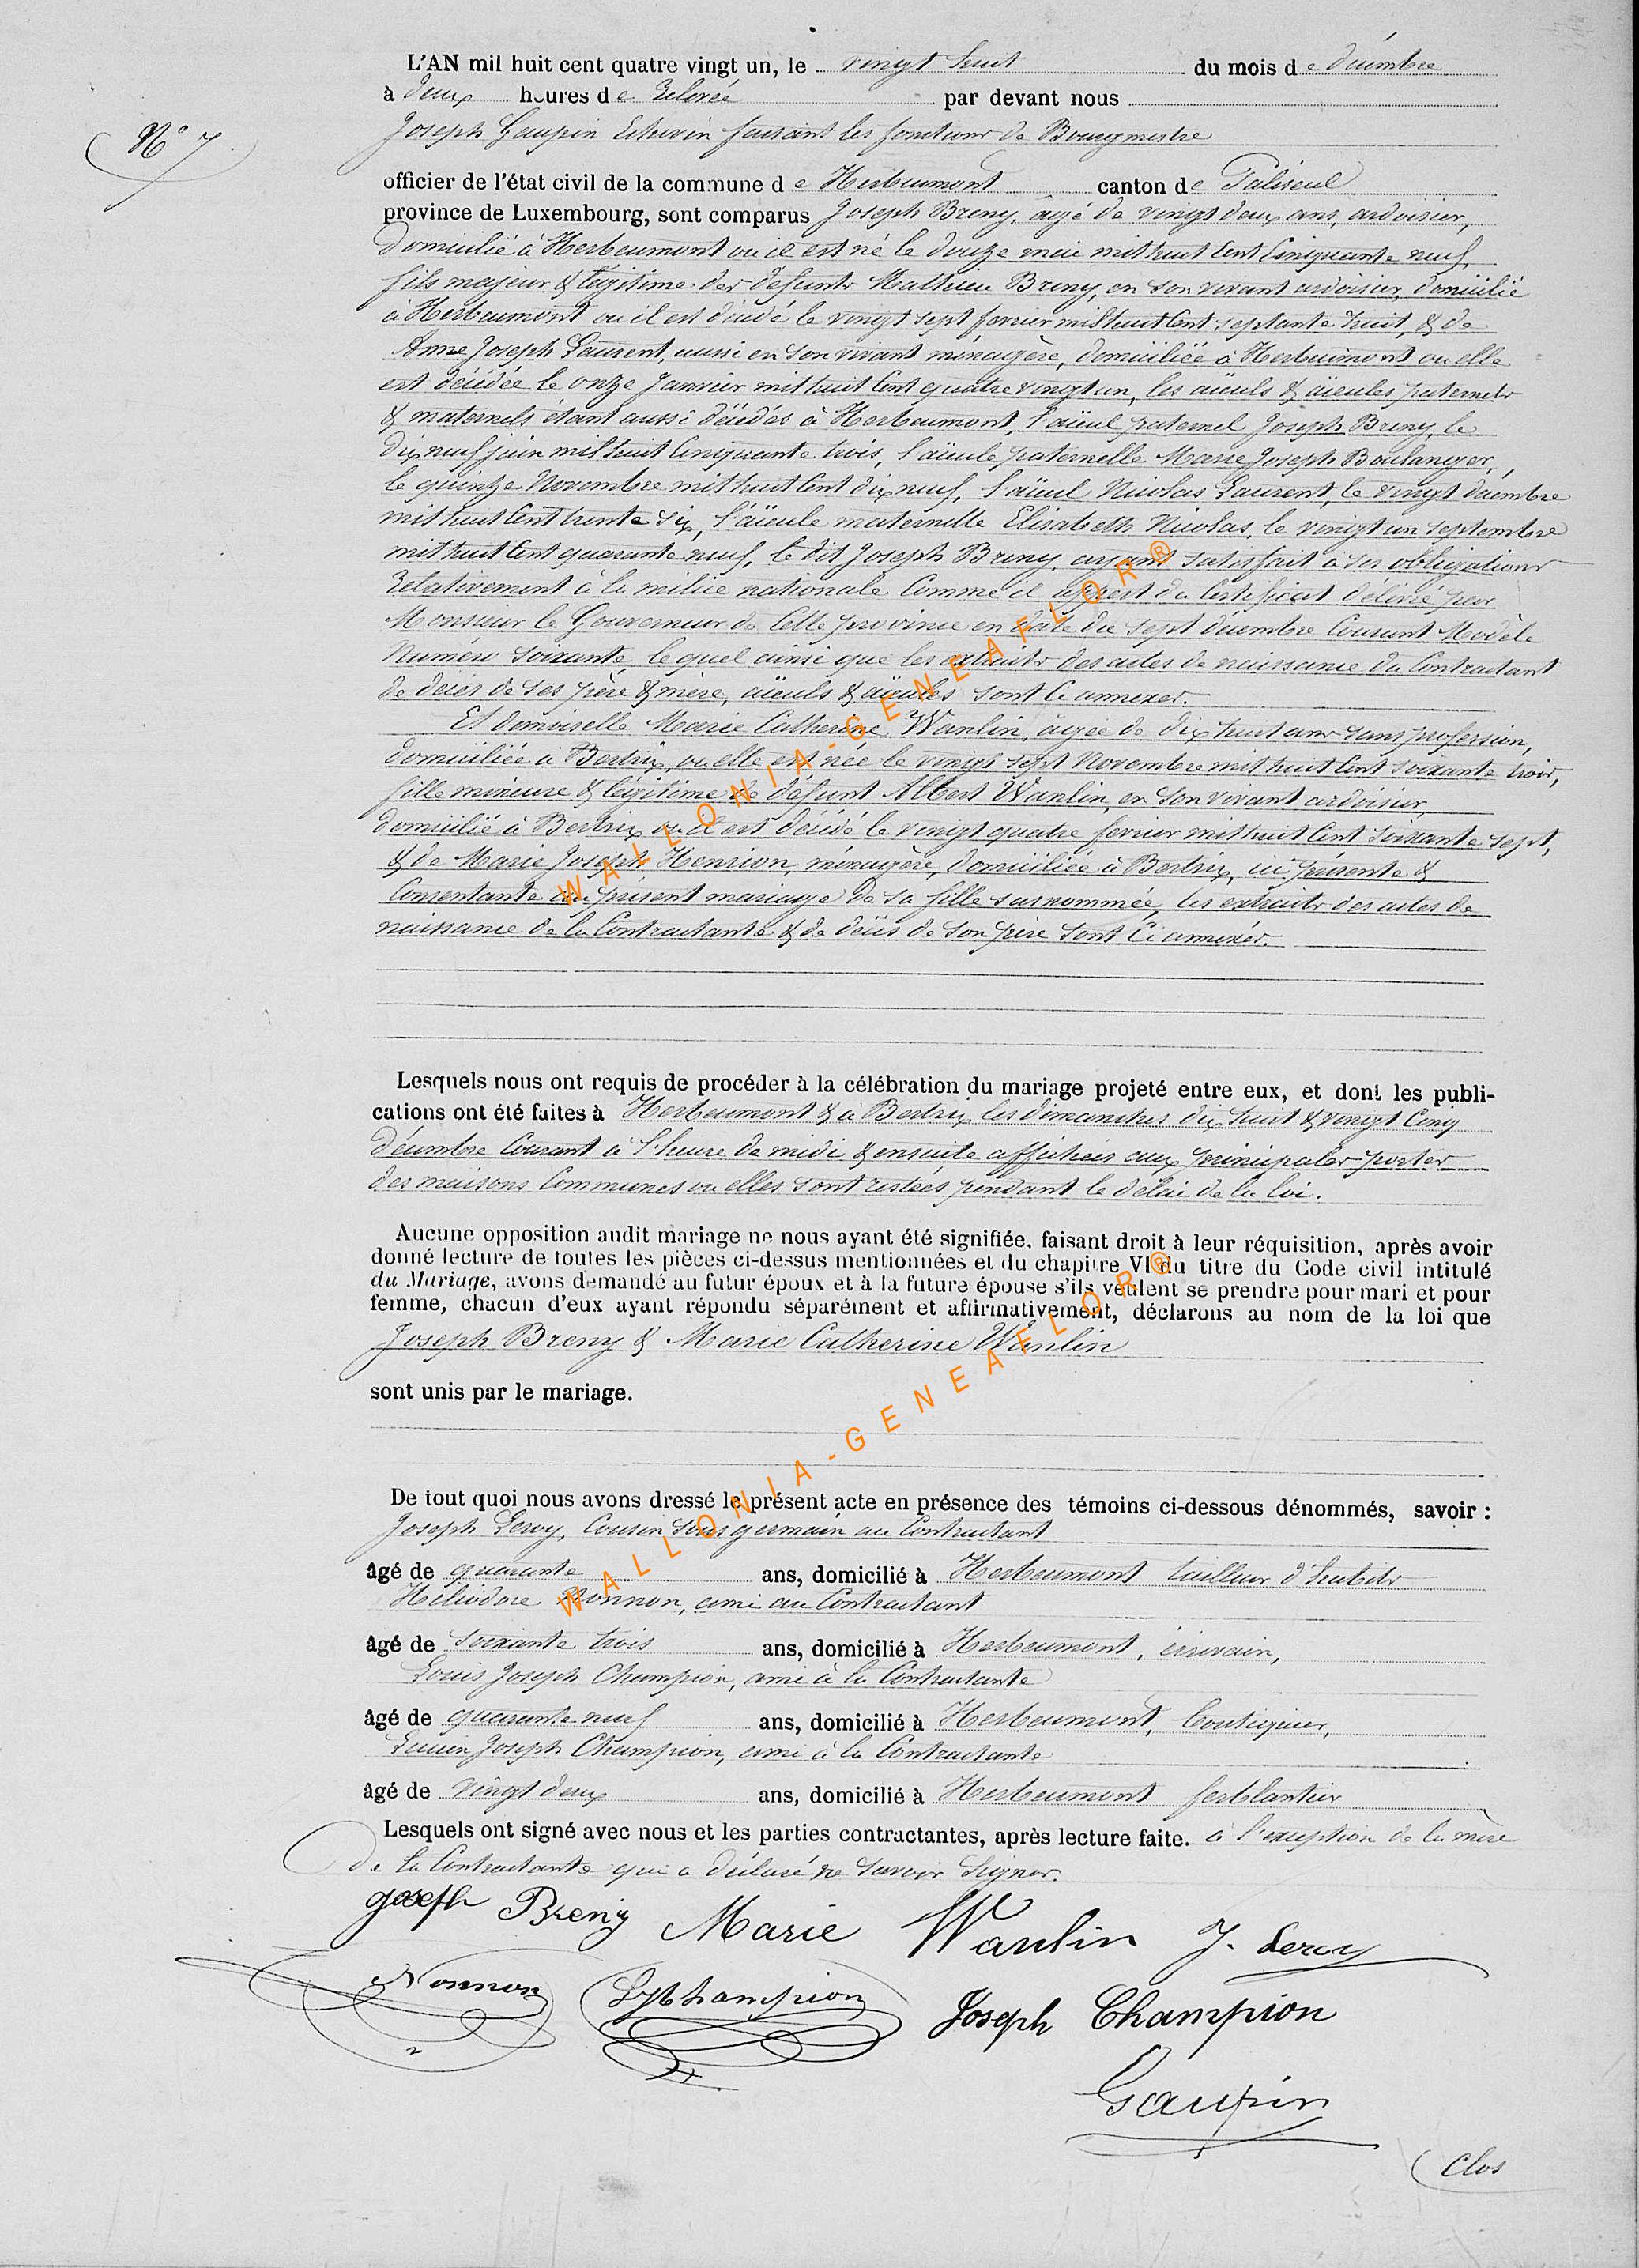 L'AN mil huit cent quatre vingt un, le vingt huit du mois de décembre
à deux heures de Relevée par devant nous
N° 7
Joseph Gaupin Echevin faisant les fonctions de Bourgmestre
officier de l'état civil de la commune de Herbeumont canton de Paliseul
province de Luxembourg, sont comparus Joseph Breny, âgé de vingt deux ans, ardoisier,
domicilié à Herbeumont ou il est né le douze mai mil huit cent cinquante neuf,
fils majeur & légitime des défunts Mathieu Breny, en son vivant ardoisier, domicilié
à Herbeumont ou il est décédé le vingt sept fevrier mil huit cent septante huit, & de
Anne Joseph Laurent, aussi en son vivant ménagère, domiciliée à Herbeumont ou elle
est décédée le onze Janvier mil huit cent quatre vingt un, les aïeuls & aïeules paternels
& maternels étant aussi décédés à Herbeumont, l'aïeul paternel Joseph Breny, le
dix neuf juin mil huit cinquante trois, l'aïeule paternelle Marie Joseph Boulanger,
le quinze Novembre mil huit cent dix neuf, l'aïeul Nicolas Laurent, le vingt décembre
mil huit cent trente six, l'aïeule maternelle Elisabeth Nicolas, le vingt un septembre
mil huit cent quarante neuf, le dit Joseph Breny ayant satisfait à ses obligations
relativement à la milice nationale comme il appert du certificat délivré par
Monsieur le Gouverneur de cette province en date du sept décembre courant Modèle
Numéro soixante, le quel ainsi que les extraits des actes de naissance du Contractant
de décès de ses père & mère, aïeuls & aïeules sont ci annexés.
Et demoiselle Marie Catherine Wanlin, agée de dix huit ans sans profession,
domiciliée à Bertrix ou elle est née le vingt sept Novembre mil huit cent soixante trois,
fille mineure & légitime de défunt Albert Wanlin, en son vivant ardoisier,
domicilié à Bertrix ou il est décédé le vingt quatre fevrier mil huit cent soixante sept,
& de Marie Joseph Henrion, ménagère, domiciliée à Bertrix, ici présente &
consentante au présent mariage de sa fille surnommée, les extraits des actes de
naissance de la Contractante & de décès de son père sont ci annexés.
Lesquels nous ont requis de procéder à la célébration du mariage projeté entre eux, et dont les publi-
cations ont été faites à Herbeumont & à Bertrix les dimanches dix huit & vingt cinq
décembre courant à l'heure de midi & ensuite affichées aux principales portes
des maisons Communes ou elles sont restées pendant le délai de la loi.
Aucune opposition audit mariage ne nous ayant été signifiée, faisant droit à leur réquisition, après avoir
donné lecture de toutes les pièces ci-dessus mentionnées et du chapitre VI du titre du Code civil intitulé
du Mariage, avons demandé au futur époux et à la future épouse s'ils veulent se prendre pour mari et pour
femme, chacun d'eux ayant répondu séparément et affirmativement, déclarons au nom de la loi que
Joseph Breny & Marie Catherine Wanlin
sont unis par le mariage.
De tout quoi nous avons dressé le présent acte en présence des témoins ci-dessous dénommés, savoir :
Joseph Leroy, Cousin sous germain au Contractant
âgé de quarante ans, domicilié à Herbeumont tailleur d'habits
Héliodore Nonnon, ami au Contractant
âgé de soixante trois ans, domicilié à Herbeumont, écrivain,
Louis Joseph Champion, ami à la Contractante
âgé de quarante neuf ans, domicilié à Herbeumont, boutiquier,
Lucien Joseph Champion, ami à la Contractante
âgé de vingt deux ans, domicilié à Herbeumont ferblantier
Lesquels ont signé avec nous et les parties contractantes, après lecture faite. à l'exception de la mère
de la Contractante qui a déclaré ne savoir signer.
joseph Breny Marie Wanlin J. Leroy
Nonnon LJChampion Joseph Champion
Gaupin
Clos
WALLONIA-GENEAFLOR®
WALLONIA-GENEAFLOR®